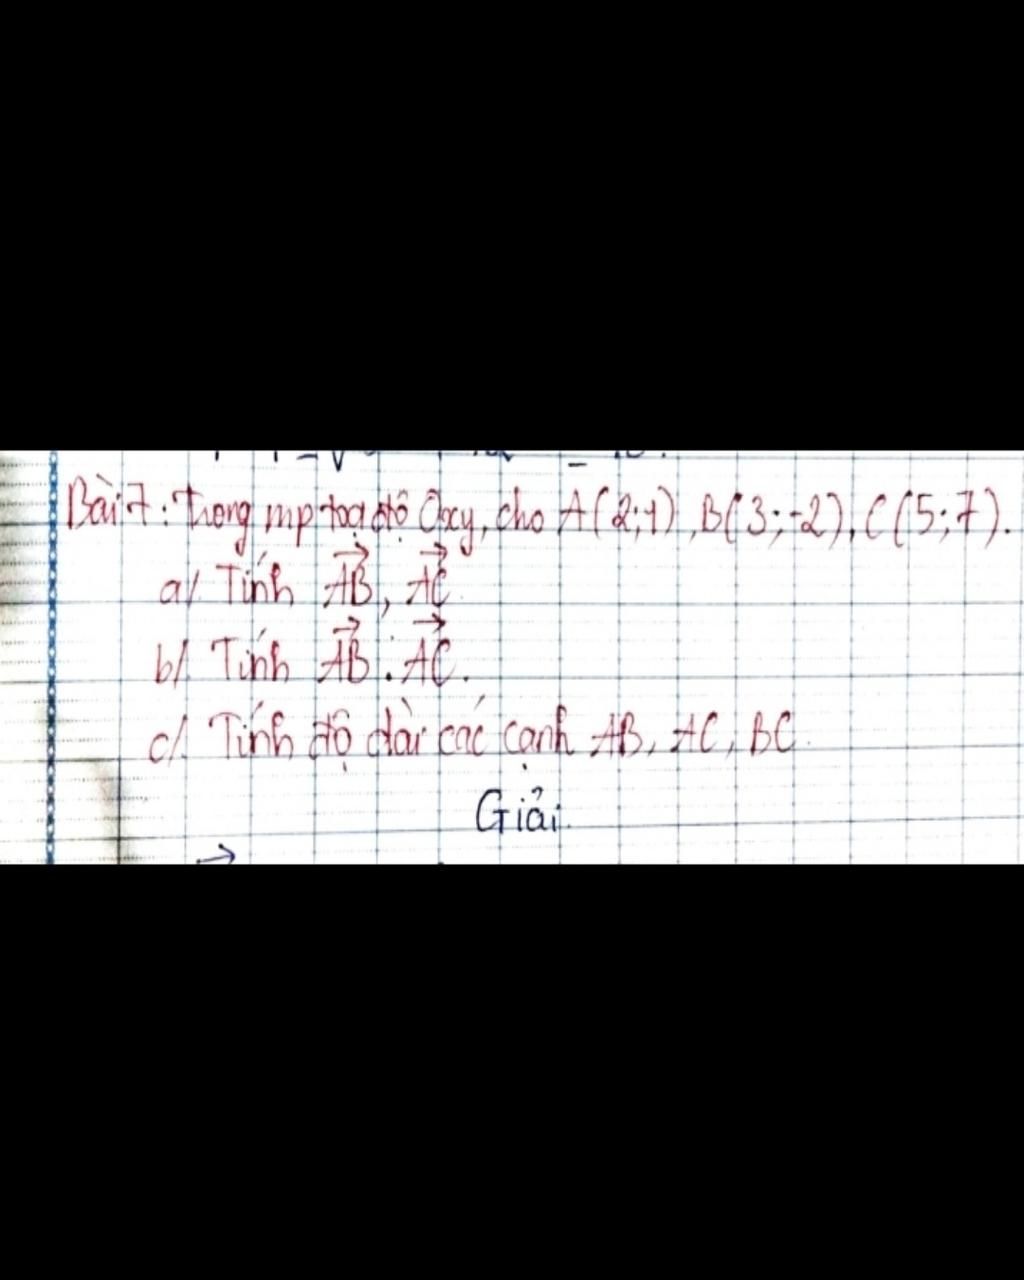 Bài 7: Trong mp toạ độ Oxy, cho A(2;1), B(3;-2), C(5;7).
a/ Tính \overrightarrow{AB}, \overrightarrow{AC}.
b/ Tính \overrightarrow{AB} . \overrightarrow{AC}.
c/ Tính độ dài các cạnh AB, AC, BC.
Giải.